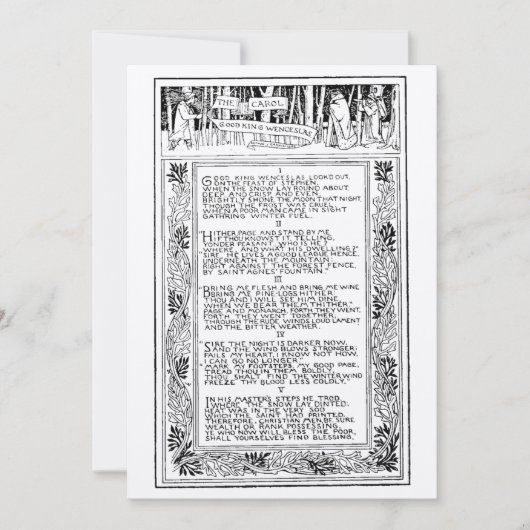 THE CAROL
GOOD KING WENCESLAS
I
GOOD KING WENCESLAS LOOKD OUT,
ON THE FEAST OF STEPHEN,
WHEN THE SNOW LAY ROUND ABOUT,
DEEP AND CRISP AND EVEN,
BRIGHTLY SHONE THE MOON THAT NIGHT,
THOUGH THE FROST WAS CRUEL,
WHEN A POOR MAN CAME IN SIGHT
GATHRING WINTER FUEL.
II
"HITHER PAGE AND STAND BY ME
IF THOU KNOWST IT, TELLING,
YONDER PEASANT, WHO IS HE,
WHERE, AND WHAT HIS DWELLING?"
"SIRE, HE LIVES A GOOD LEAGUE HENCE,
UNDERNEATH THE MOUNTAIN;
RIGHT AGAINST THE FOREST FENCE,
BY SAINT AGNES' FOUNTAIN."
III
BRING ME FLESH AND BRING ME WINE
BRING ME PINE-LOGS HITHER
THOU AND I WILL SEE HIM DINE
WHEN WE BEAR THEM THITHER."
PAGE AND MONARCH, FORTH THEY WENT,
FORTH THEY WENT TOGETHER;
THROUGH THE RUDE WINDS LOUD LAMENT
AND THE BITTER WEATHER.
IV
"SIRE THE NIGHT IS DARKER NOW,
AND THE WIND BLOWS STRONGER;
FAILS MY HEART, I KNOW NOT HOW,
I CAN GO NO LONGER."
"MARK MY FOOTSTEPS, MY GOOD PAGE,
TREAD THOU IN THEM BOLDLY,
THOU SHALT FIND THE WINTER WIND
FREEZE THY BLOOD LESS COLDLY."
V
IN HIS MASTER'S STEPS HE TROD
WHERE THE SNOW LAY DINTED;
HEAT WAS IN THE VERY SOD
WHICH THE SAINT HAD PRINTED,
THEREFORE, CHRISTIAN MEN, BE SURE
WEALTH OR RANK POSSESSING,
YE WHO NOW WILL BLESS THE POOR,
SHALL YOURSELVES FIND BLESSING.